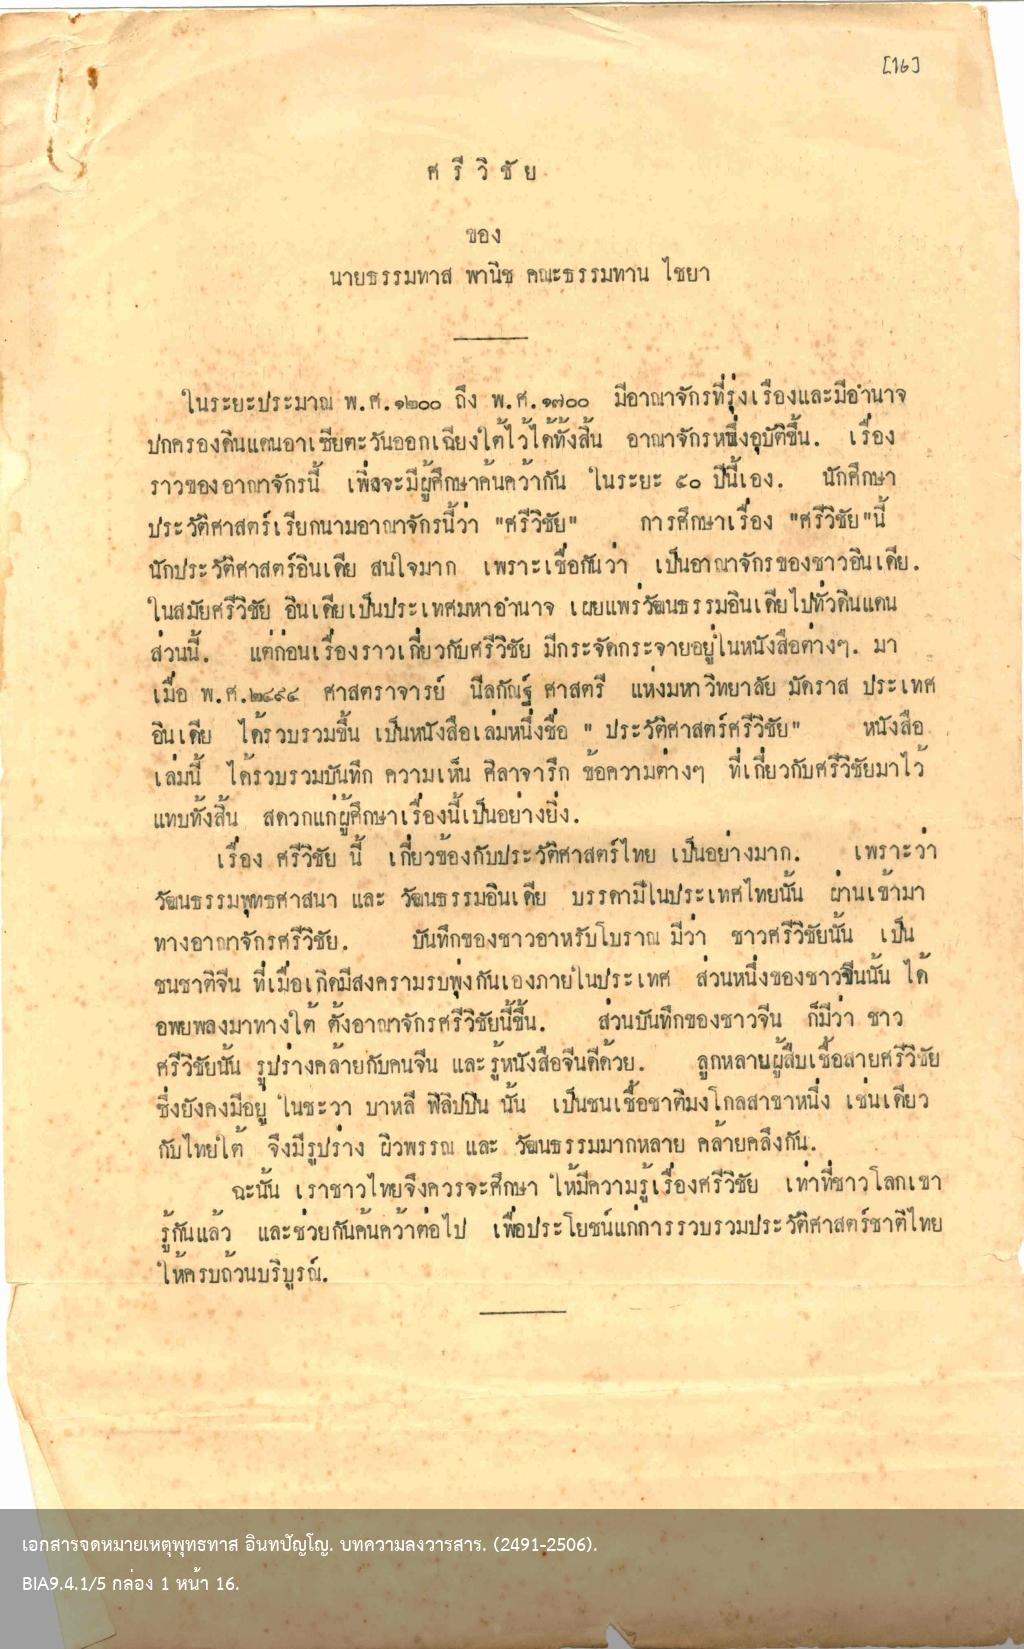 [16]
ศรีวิชัย
ของ
นายธรรมทาส พานิช คณะธรรมทาน ไชยา
ในระยะประมาณ พ.ศ.๑๒๐๐ ถึง พ.ศ.๑๗๐๐ มีอาณาจักรที่รุ่งเรืองและมีอำนาจ
ปกครองดินแดนอาเซียตะวันออกเฉียงใต้ไว้ได้ทั้งสิ้น อาณาจักรหนึ่งอุบัติขึ้น. เรื่อง
ราวของอาณาจักรนี้ เพิ่งจะมีผู้ศึกษาค้นคว้ากัน ในระยะ ๕๐ ปีนี้เอง. นักศึกษา
ประวัติศาสตร์เรียกนามอาณาจักรนี้ว่า "ศรีวิชัย" การศึกษาเรื่อง "ศรีวิชัย"นี้
นักประวัติศาสตร์อินเดีย สนใจมาก เพราะเชื่อกันว่า เป็นอาณาจักรของชาวอินเดีย.
ในสมัยศรีวิชัย อินเดียเป็นประเทศมหาอำนาจ เผยแพร่วัฒนธรรมอินเดียไปทั่วดินแดน
ส่วนนี้. แต่ก่อนเรื่องราวเกี่ยวกับศรีวิชัย มีกระจัดกระจายอยู่ในหนังสือต่างๆ. มา
เมื่อ พ.ศ.๒๔๙๔ ศาสตราจารย์ นีลกัณฐ์ ศาสตรี แห่งมหาวิทยาลัย มัดราส ประเทศ
อินเดีย ได้รวบรวมขึ้น เป็นหนังสือเล่มหนึ่งชื่อ " ประวัติศาสตร์ศรีวิชัย" หนังสือ
เล่มนี้ ได้รวบรวมบันทึก ความเห็น ศิลาจารึก ข้อความต่างๆ ที่เกี่ยวกับศรีวิชัยมาไว้
แทบทั้งสิ้น สดวกแก่ผู้ศึกษาเรื่องนี้เป็นอย่างยิ่ง.
เรื่อง ศรีวิชัย นี้ เกี่ยวข้องกับประวัติศาสตร์ไทย เป็นอย่างมาก. เพราะว่า
วัฒนธรรมพุทธศาสนา และ วัฒนธรรมอินเดีย บรรดามีในประเทศไทยนั้น ผ่านเข้ามา
ทางอาณาจักรศรีวิชัย. บันทึกของชาวอาหรับโบราณ มีว่า ชาวศรีวิชัยนั้น เป็น
ชนชาติจีน ที่เมื่อเกิดมีสงครามรบพุ่งกันเองภายในประเทศ ส่วนหนึ่งของชาวจีนนั้น ได้
อพยพลงมาทางใต้ ตั้งอาณาจักรศรีวิชัยนี้ขึ้น. ส่วนบันทึกของชาวจีน ก็มีว่า ชาว
ศรีวิชัยนั้น รูปร่างคล้ายกับคนจีน และรู้หนังสือจีนดีด้วย. ลูกหลานผู้สืบเชื้อสายศรีวิชัย
ซึ่งยังคงมีอยู่ ในชะวา บาหลี ฟิลิปปิน นั้น เป็นชนเชื้อชาติมงโกลสาขาหนึ่ง เช่นเดียว
กับไทยใต้ จึงมีรูปร่าง ผิวพรรณ และ วัฒนธรรมมากหลาย คล้ายคลึงกัน.
ฉะนั้น เราชาวไทยจึงควรจะศึกษา ให้มีความรู้เรื่องศรีวิชัย เท่าที่ชาวโลกเขา
รู้กันแล้ว และช่วยกันค้นคว้าต่อไป เพื่อประโยชน์แก่การรวบรวมประวัติศาสตร์ชาติไทย
ให้ครบถ้วนบริบูรณ์.
เอกสารจดหมายเหตุพุทธทาส อินทปัญโญ. บทความลงวารสาร. (2491-2506).
BIA9.4.1/5 กล่อง 1 หน้า 16.